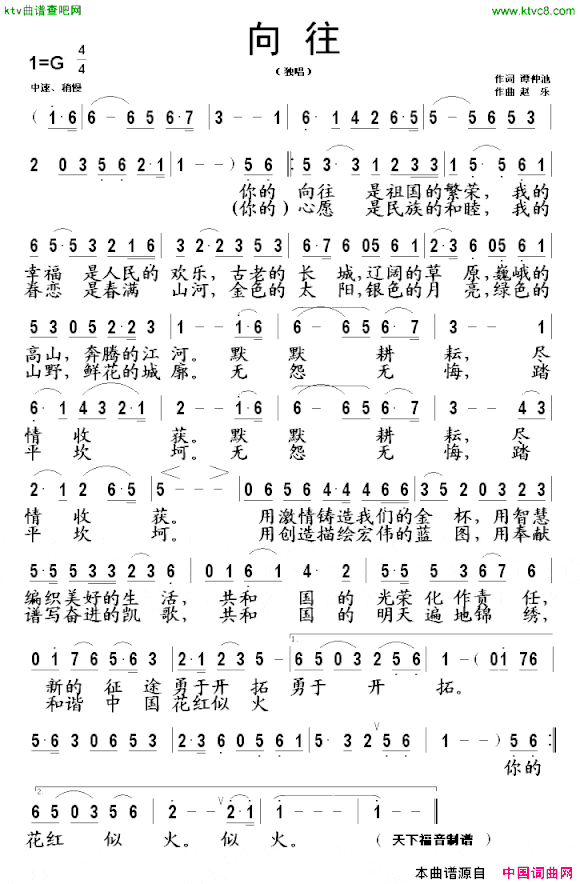 ktv曲谱查吧网
www.ktvc8.com
向往
（独唱）
1=G 4/4
中速、稍慢
作词 谭仲池
作曲 赵 乐
( 1·6 | 6 – 6 5 6·7 | 3 – – 1 | 6· 1 6 5 4 2 | 5 – 5 6 5 3 |
2 0 3 5 6 2·1 | 1 – – ) 5 6 ‖: 5 3· 3 1 2 3 3 | 1 5· 5 6 1 |
你的 向往 是祖国的繁荣，我的
(你的)心愿 是民族的和睦，我的
6 5· 5 3 2 1 1 6 | 3 2· 2 3 5 6 1 | 6·7 6 05 6 1 | 2·3 6 05 6 1 |
幸福 是人民的 欢乐，古老的 长 城，辽阔的草 原，巍峨的
春恋 是春满 山河，金色的 太 阳，银色的月 亮，绿色的
5 3 0 5 2·2 3 | 1 – – 1·6 | 6 – 6 5 6·7 | 3 – – 1 |
高山，奔腾的江 河。 默 默 耕 耘，尽
山野，鲜花的城 廓。 无 怨 无 悔，踏
6· 1 4 3 2·1 | 2 – – 1·6 | 6 – 6 5 6·7 | 3 – – 4 3 |
情 收 获。 默 默 耕 耘，尽
平 坎 坷。 无 怨 无 悔，踏
2· 1 2 6·5 | 5 – – – | 0 6 5 6 4 6 5 6 4 | 3 5 2 0 3 2 3 |
情 收 获。 用激情铸造我们的金 杯，用智慧
平 坎 坷。 用创造描绘宏伟的蓝 图，用奉献
5·5 5 3 3 2 3 6 | 0 1 6 1 4· 2 | 5·5 5 3 6 7 6 |
编织美好的生 活，共和 国 的 光荣 化 作责 任，
谱写奋进的凯 歌，共和 国 的 明天 遍 地锦 绣，
1.
0 1 7 6 5·6 | 2·1 2 3 5 – | 6 5 0 3 2 5 | 1 – ( 01 76 |
新的 征 途 勇于开 拓 勇于 开 拓。
和谐 中 国 花红似 火
5·6 3 0 6 5 3 | 2·3 6 0 6 5 0 6 1 | 5· 3 5 2 5 6 | 1 – – ) 5 6 :‖
你的
2.
6 5 0 3 5 6 | 2 – – 2·1 | 1 – – – | 1 – – ‖
花红 似 火。 似 火。
（ 天下福音制谱 ）
本曲谱源自 中国词曲网